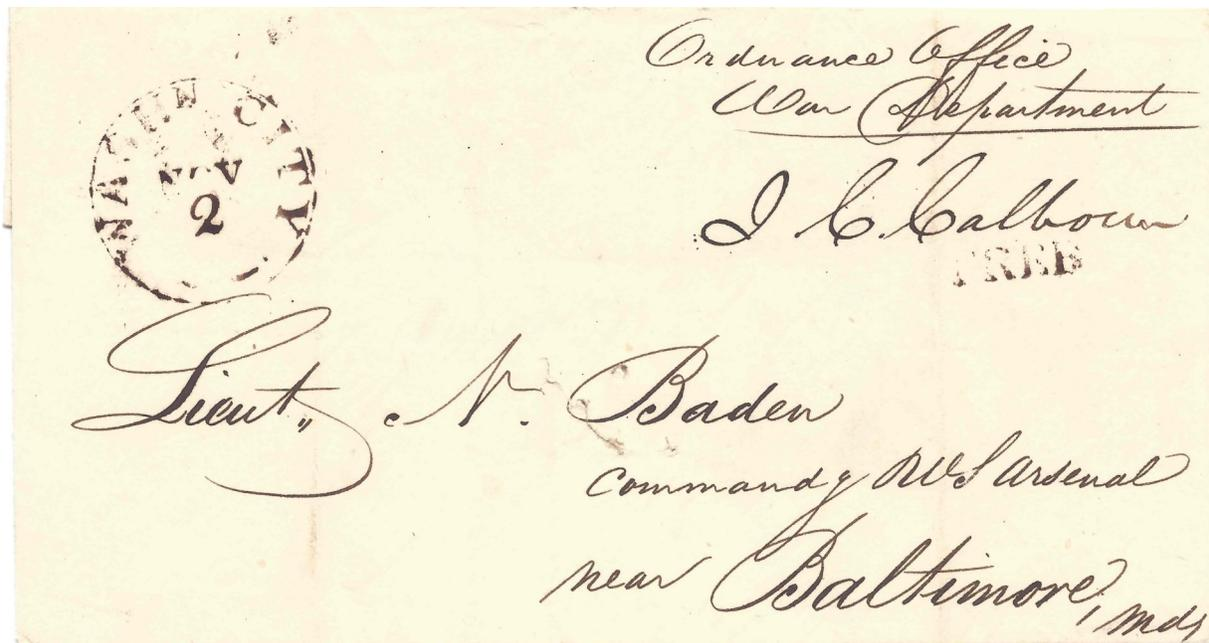 Ordnance Office
War Department
J C. Calhoun
FREE
WASHN CITY
NOV
2
Lieut,, N. Baden
Commandg US Arsenal
near Baltimore, Md